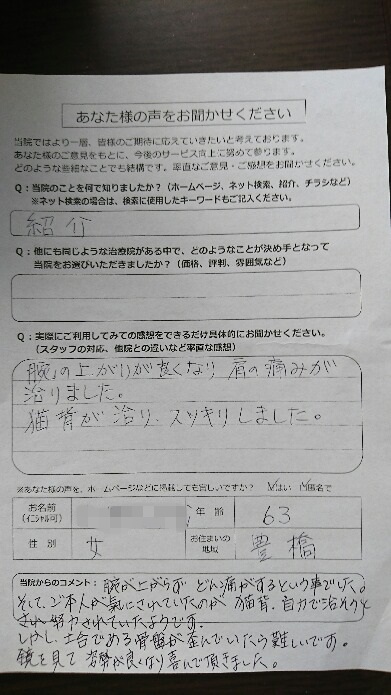 あなた様の声をお聞かせください
当院ではより一層、皆様のご期待に応えていきたいと考えております。
あなた様のご意見をもとに、今後のサービス向上に努めて参ります。
どのような些細なことでも結構です。率直なご意見・ご感想をお聞かせください。
Q:当院のことを何で知りましたか?(ホームページ、ネット検索、紹介、チラシなど)
※ネット検索の場合は、検索に使用したキーワードもご記入ください。
紹介
Q:他にも同じような治療院がある中で、どのようなことが決め手となって
当院をお選びいただきましたか?(価格、評判、雰囲気など)
Q:実際にご利用してみての感想をできるだけ具体的にお聞かせください。
(スタッフの対応、他院との違いなど率直な感想)
腕の上がりが良くなり肩の痛みが
治りました。
猫背が治り、スッキリしました。
※あなた様の声を、ホームページなどに掲載しても宜しいですか? はい 匿名で
お名前 年齢 63
(イニシャル可)
性別 女 お住まいの地域 豊橋
当院からのコメント:腕が上がらず どん痛がするという事でした。
そして、ご本人が気にされていたのが 猫背。自力で治そうと
され 努力されていたようです。
しかし、土台である骨盤が歪んでいたら難しいです。
鏡を見て 姿勢が良くなり喜んで頂きました。